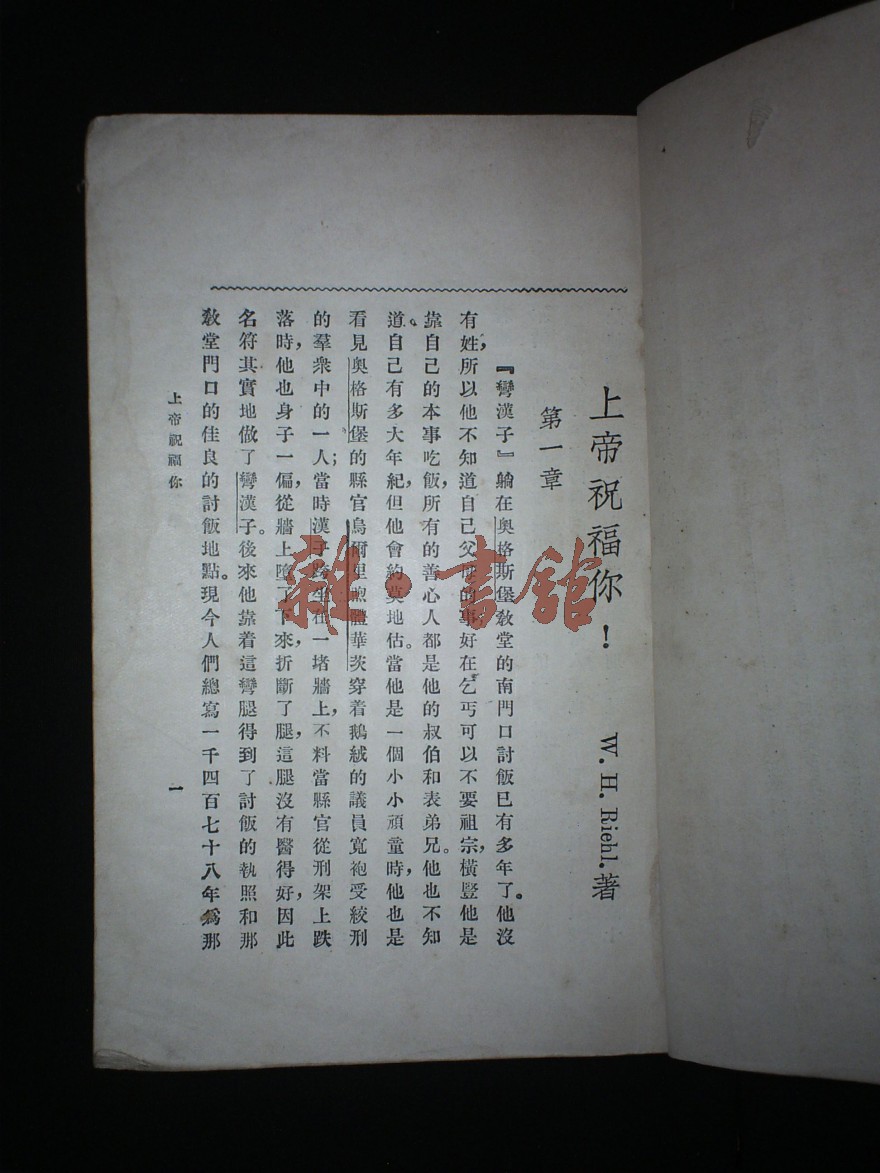 上帝祝福你！ W. H. Riehl. 著
第一章
『彎漢子』躺在奥格斯堡教堂的南門口討飯已有多年了。他沒
有姓，所以他不知道自己父母的事，好在乞丐可以不要祖宗，橫豎他是
靠自己的本事吃飯，所有的善心人都是他的叔伯和表弟兄。他也不知
道自己有多大年紀，但他會約莫地估。當他是一個小小頑童時，他也是
看見奥格斯堡的縣官烏爾里煦體華茨穿着鵝絨的議員寬袍受絞刑
的羣衆中的一人；當時漢子跨坐在一堵牆上，不料當縣官從刑架上跌
落時，他也身子一偏，從牆上墮了下來，折斷了腿，這腿沒有醫得好，因此
名符其實地做了彎漢子。後來他靠着這彎腿得到了討飯的執照和那
教堂門口的佳良的討飯地點。現今人們總寫一千四百七十八年爲那
上帝祝福你
一
雜·書館